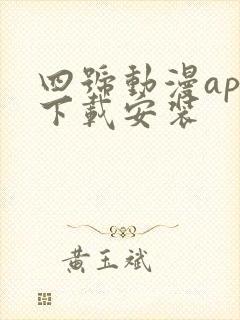 四號動漫ap
下載安裝
黃玉斌